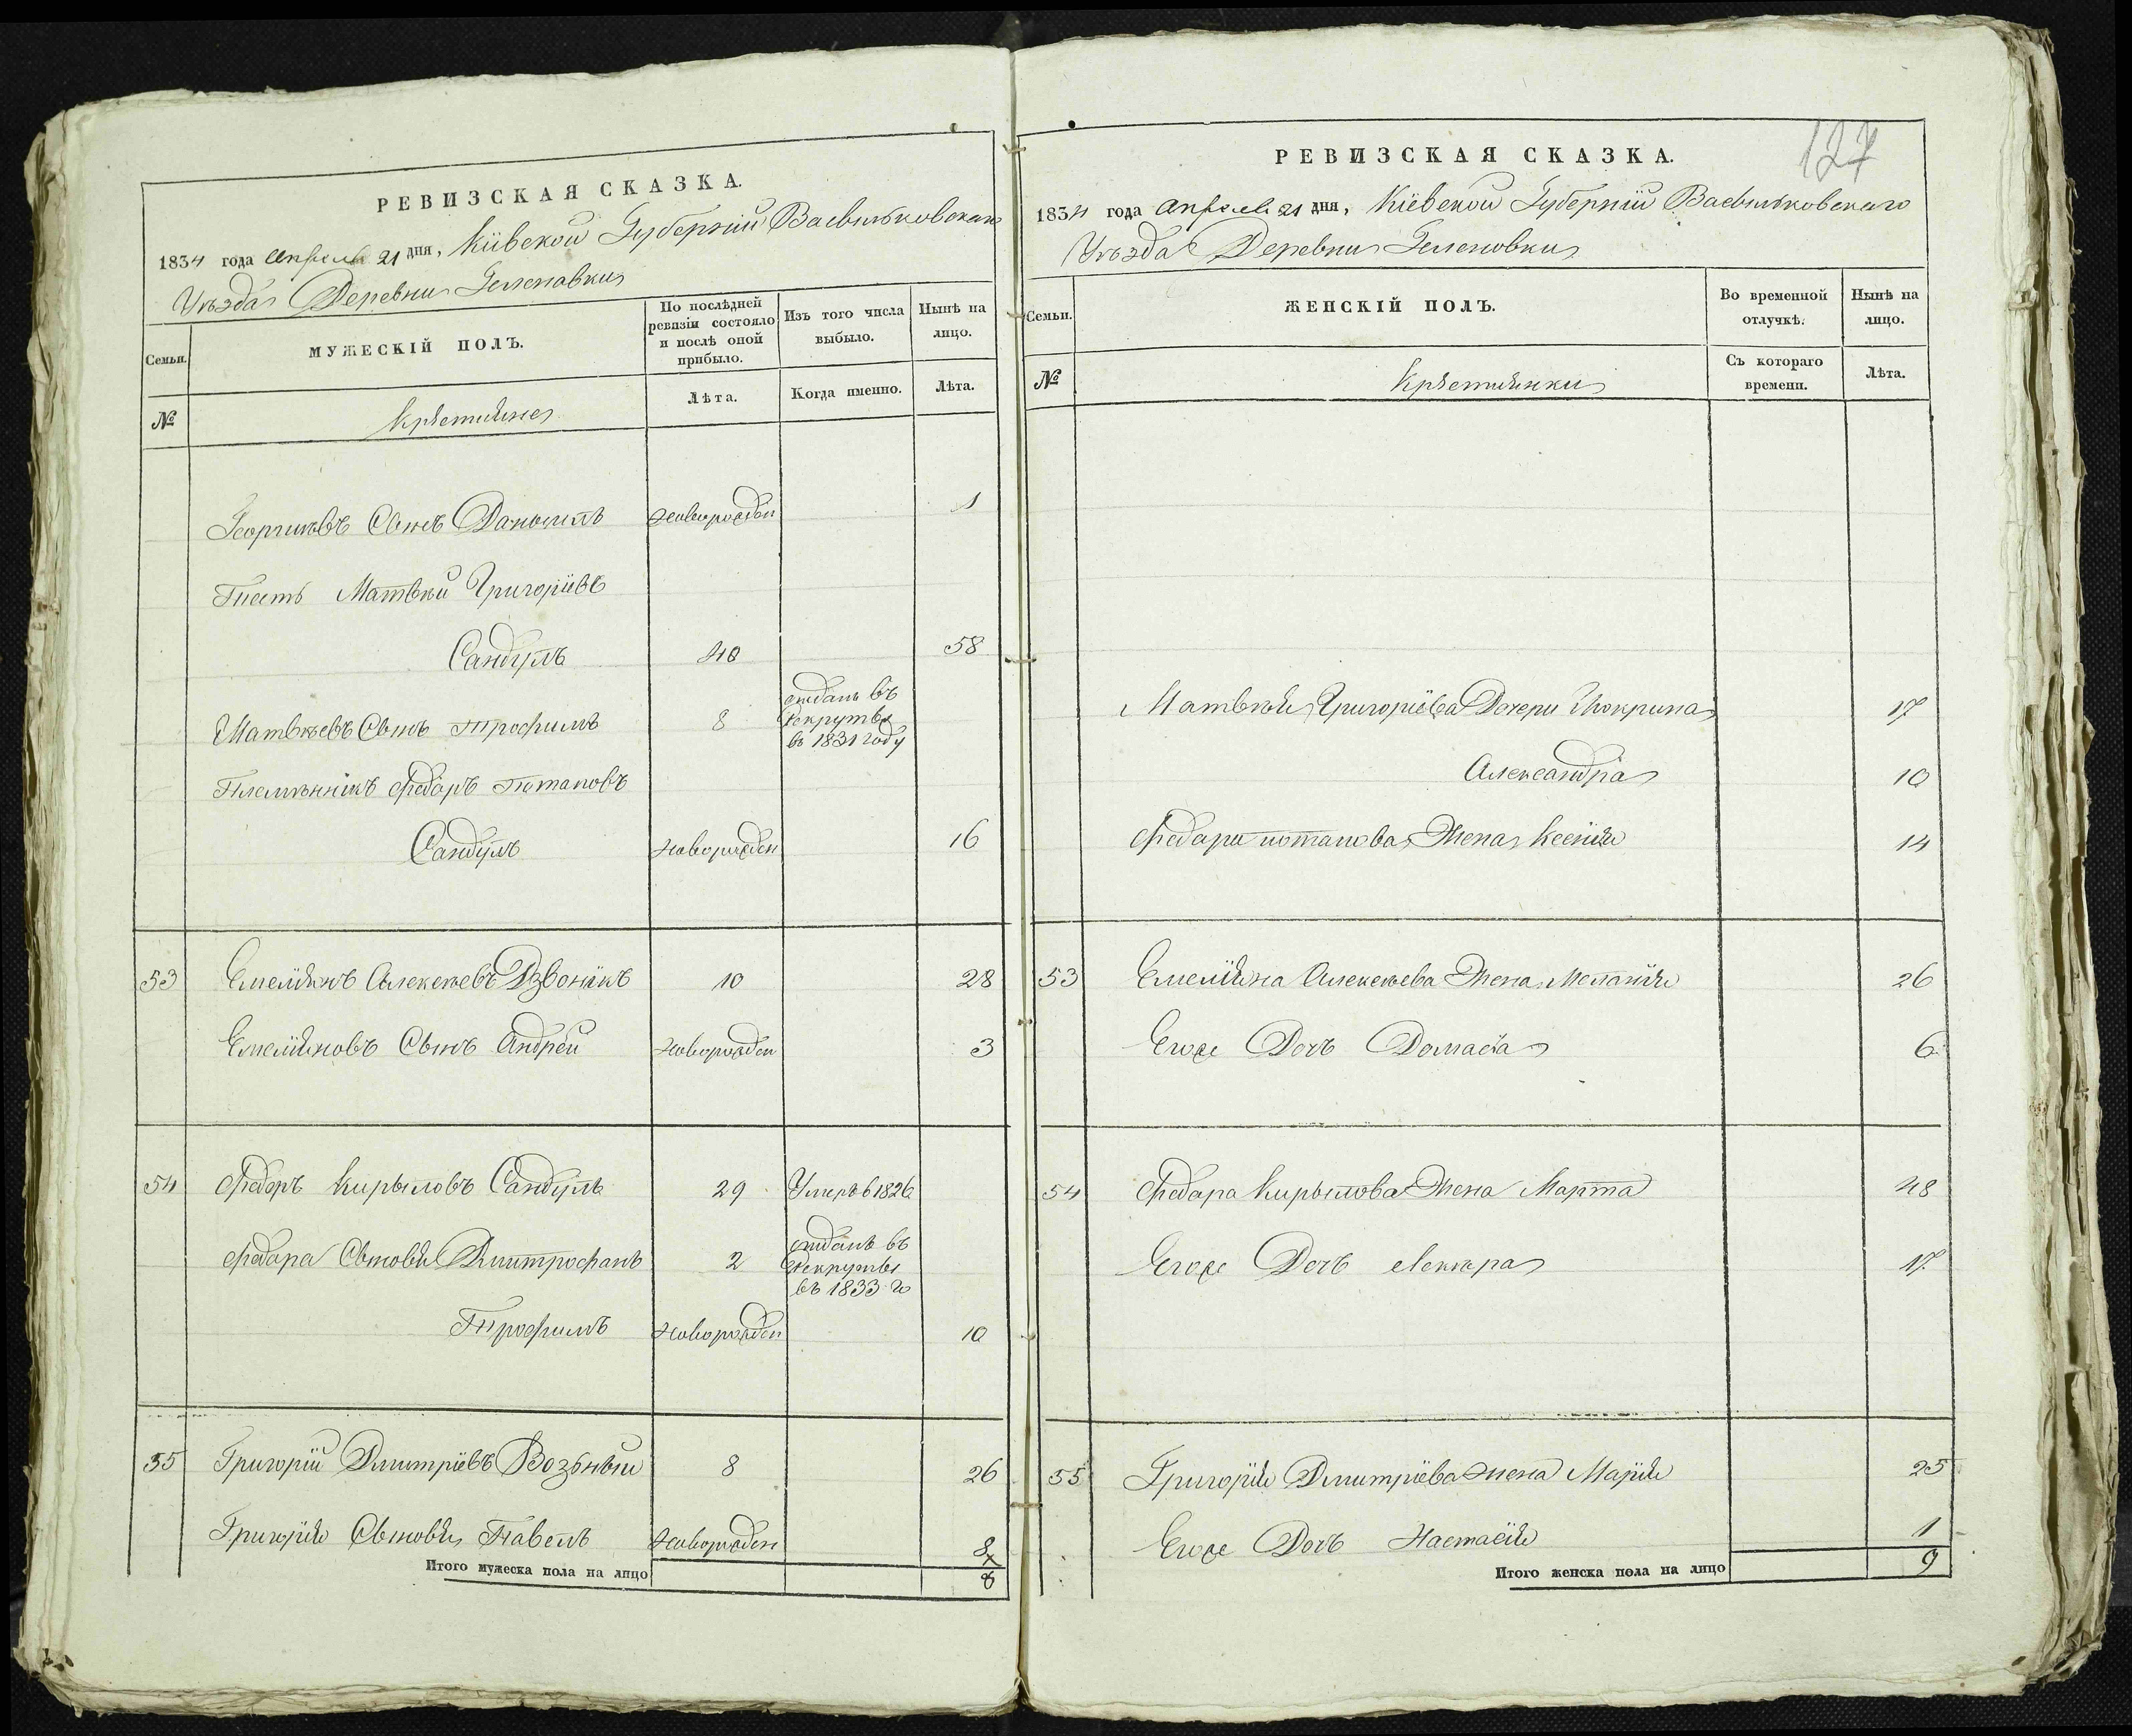 РЕВИЗСКАЯ СКАЗКА.
1834 года Апреля 21 дня, Кіевской Губерніи Васильковскаго
Уѣзда Деревни Геленовки
Семьи.
МУЖЕСКІЙ ПОЛЪ.
По послѣдней ревизіи состояло и послѣ оной прибыло.
Изъ того числа выбыло.
Нынѣ на лицо.
№
Крѣстьяне
Лѣта.
Когда именно.
Лѣта.
Георгиевъ Сынъ новорожден 1
Тесть Матвѣй Григоріевъ
Сандулъ 40 58
Матвѣевъ Сынъ Трофимъ 8 отданъ въ
Рекруты
въ 1831 году
Племѣнникъ Федоръ Потаповъ
Сандулъ новорожден 16
53 Емельянъ Алексѣевъ Дзвоникъ 10 28
Емельяновъ Сынъ Андрей новорожден 3
54 Федоръ Кирыловъ Сандулъ 29 Умеръ в 1826
Федора Сыновья Митрофанъ 2 отданъ въ
Рекруты
въ 1833 го
Трофимъ новорожден 10
55 Григорій Дмитріевъ Возьный 8 26
Григорія Сыновья Павелъ новорожден 8
Итого мужеска пола на лицо 8
127
РЕВИЗСКАЯ СКАЗКА.
1834 года Апреля 21 дня, Кіевской Губерніи Васильковскаго
Уѣзда Деревни Геленовки
Семьи.
ЖЕНСКІЙ ПОЛЪ.
Во временной отлучкѣ.
Нынѣ на лицо.
№
Крѣстьянки
Съ котораго времени.
Лѣта.
Матвѣя Григоріева Дочери Мокрина 17
Александра 10
Федора Потапова Жена Ксенія 14
53 Емельяна Алексѣева Жена Меланія 26
Егоже Дочь Домаха 6
54 Федора Кирылова Жена Марта 48
Егоже Дочь 17
55 Григорія Дмитріева жена Марія 25
Егоже Дочь Настасія 1
Итого женска пола на лицо 9